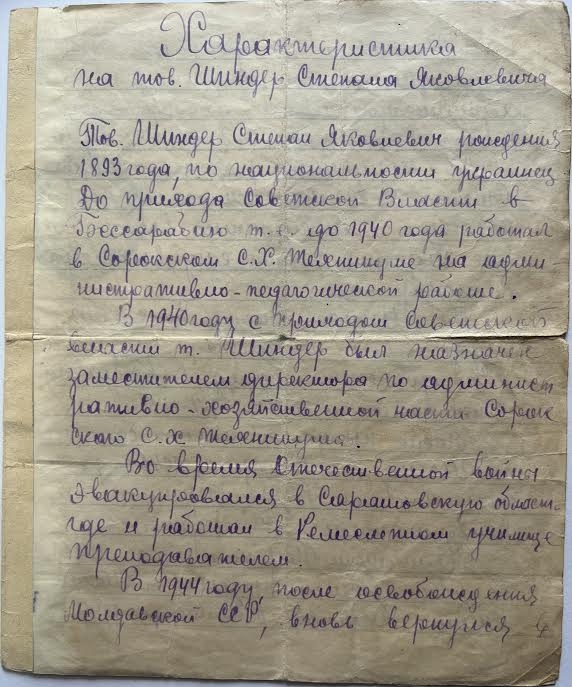 Характеристика
на тов. Шиндер Степана Яковлевича
Тов. Шиндер Степан Яковлевич рождения
1893 года, по национальности украинец.
До прихода Советской Власти в
Бессарабию т. е. до 1940 года работал
в Сорокском С.Х. Техникуме на адми-
нистративно-педагогической работе.
В 1940 году с приходом Советской
власти т. Шиндер был назначен
заместителем директора по админист
ративно-хозяйственной части Сорок
ского С.Х техникума.
Во время Отечественной войны
эвакуировался в Саратовскую област-
где и работал в Ремеслен­ном училище
преподавателем.
В 1944 году, после освобождения
Молдавской ССР, вновь вернулся